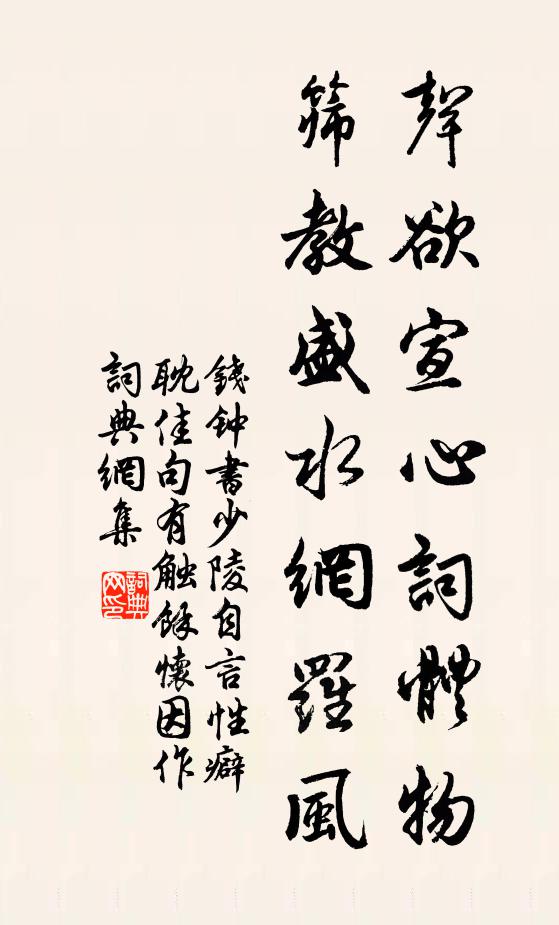 聲欲宣心詞體物
篩教盛水網羅風
錢钟書少陵自言性癖
耽佳句有触餘懷因作
詞典網集
詞典網印